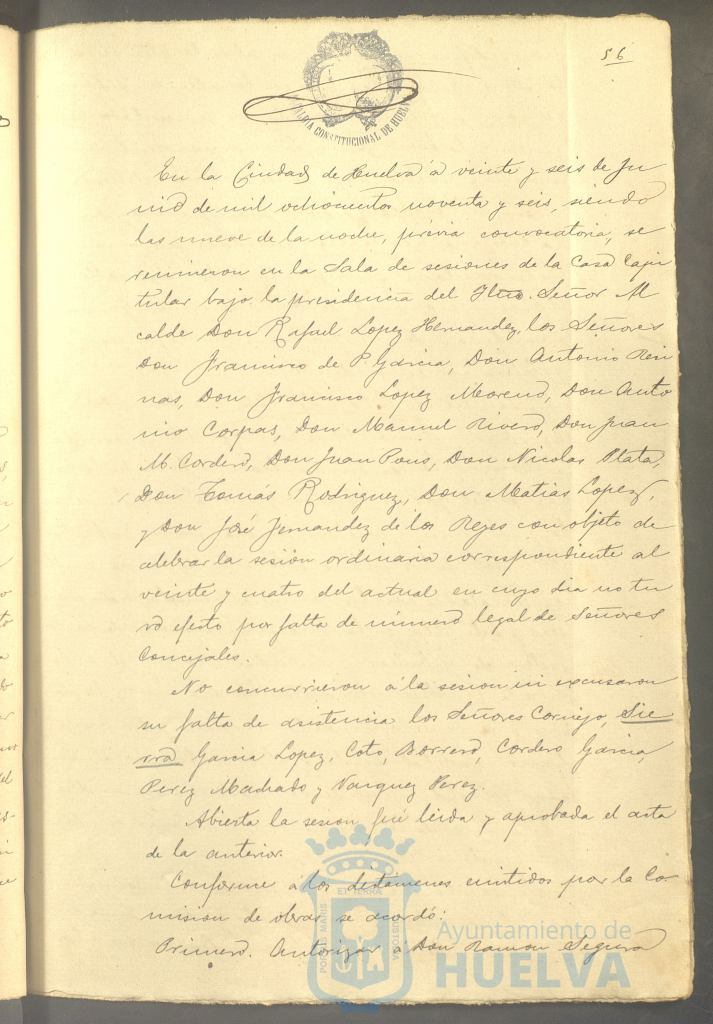 56
ALCALDIA CONSTITUCIONAL DE HUELVA
En la Ciudad de Huelva á veinte y seis de Ju
nio de mil ochocientos noventa y seis, siendo
las nueve de la noche, prévia convocatoria, se
reunieron en la Sala de sesiones de la Casa Capi
tular bajo la presidencia del Iltmo. Señor Al
calde Don Rafael Lopez Hernandez, los Señores
Don Francisco de P. Garcia, Don Antonio Rei
nas, Don Francisco Lopez Moreno, Don Anto
nio Corpas, Don Manuel Rivero, Don Juan
M. Cordero, Don Juan Pons, Don Nicolas Plata,
Don Tomás Rodriguez, Don Matias Lopez,
y Don José Fernandez de los Reyes con objeto de
celebrar la sesión ordinaria correspondiente al
veinte y cuatro del actual en cuyo dia no tu
vo efecto por falta de número legal de Señores
Concejales.
No concurrieron á la sesion ni excusaron
su falta de asistencia los Señores Cornejo, Sie
rra Garcia Lopez, Coto, Borrero, Cordero Garcia,
Perez Machado y Vazquez Perez.
Abierta la sesion fué leida y aprobada el acta
de la anterior.
Conforme á los dictámenes emitidos por la Co-
mision de obras se acordó:
Primero. Autorizar a Don Ramon Segura
PORTUS MARIS ET TERRÆ CUSTODIA
Ayuntamiento de
HUELVA